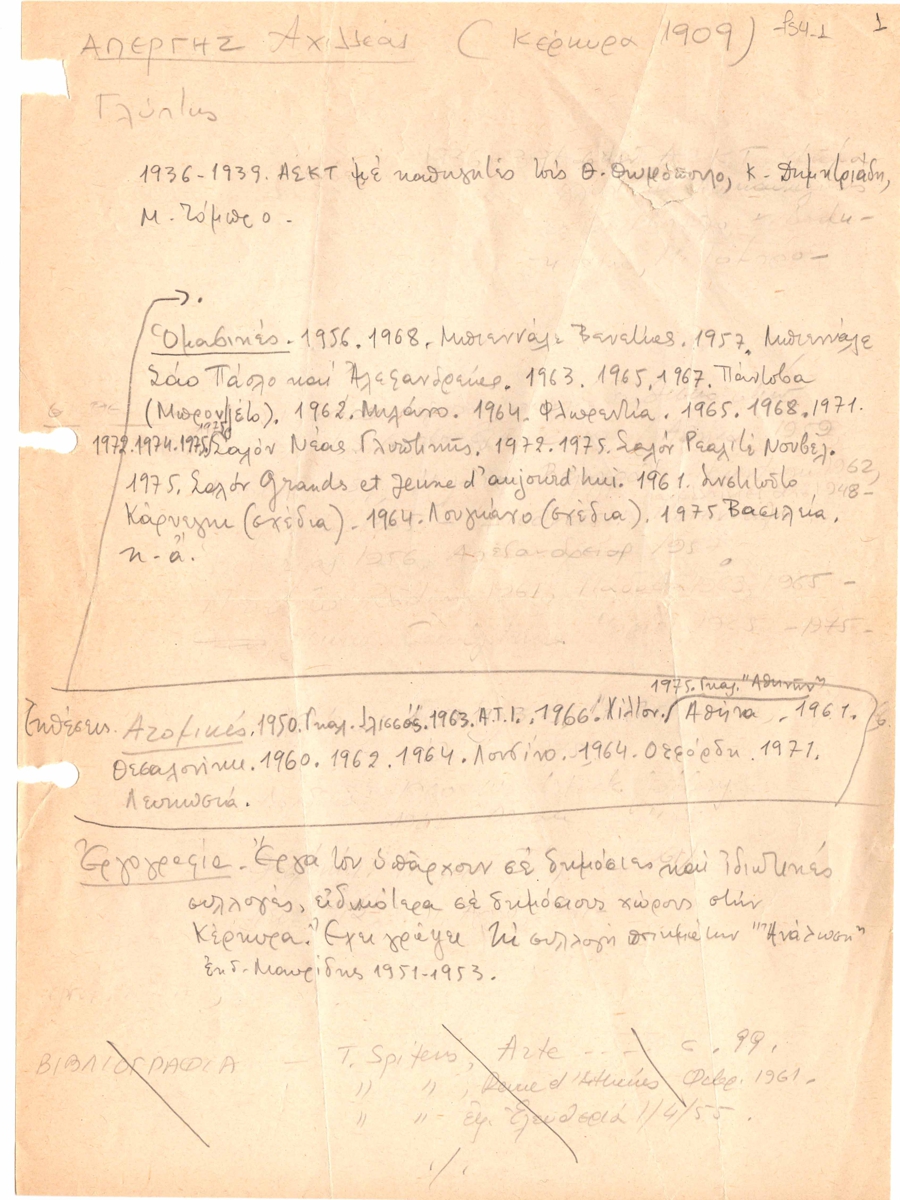 ΑΠΕΡΓΗΣ Αχιλλέας (Κέρκυρα 1909) 1
Γλύπτης
1936-1939. ΑΣΚΤ μέ καθηγητές τούς Θ. Θωμόπουλο, Κ. Δημητριάδη,
Μ. Τόμπρο -
Ὁμαδικές. 1956. 1968. Μπιεννάλε Βενετίας. 1957. Μπιεννάλε
Σάο Πάολο καί Ἀλεξανδρείας. 1963. 1965, 1967. Πάντοβα
(Μπρονζέτο). 1962. Μιλάνο. 1964. Φλωρεντία. 1965. 1968. 1971.
1972. 1974. 1975. Σαλόν Νέας Γλυπτικῆς. 1972. 1975. Σαλόν Ρεαλιτέ Νουβέλ.
1975. Σαλόν Grands et Jeune d'aujourd'hui. 1961. Ἰνστιτοῦτο
Κάρνεγκι (σχέδια). 1964. Λουγκάνο (σχέδια). 1975 Βασιλεία.
κ.ἄ.
1975. Γκαλ. "Ἀθηνῶν"
Ἐκθέσεις. Ατομικές. 1950. Γκαλ. Ἰλισσός. 1963. Α.Τ.Ι. 1966. Χίλτον. Ἀθήνα. 1961.
Θεσαλονίκη. 1960. 1962. 1964. Λονδίνο. 1964. Οξφόρδη. 1971.
Λευκωσιά.
Ἐργογραφία. Ἔργα του ὑπάρχουν σέ δημόσιες καί ἰδιωτικές
συλλογές, εἰδικώτερα σέ δημόσιους χώρους στήν
Κέρκυρα. Ἔχει γράψει τή συλλογή ποιημάτων "Ἀνάλωση"
ἐκδ. Μαυρίδης 1951-1953.
ΒΙΒΛΙΟΓΡΑΦΙΑ - T. Spiteris, Arte - - - σ. 99.
" " , d'Athènes Φεβρ. 1961.
" " - ἐφ. Ἐλευθερία 1/4/55.
./.